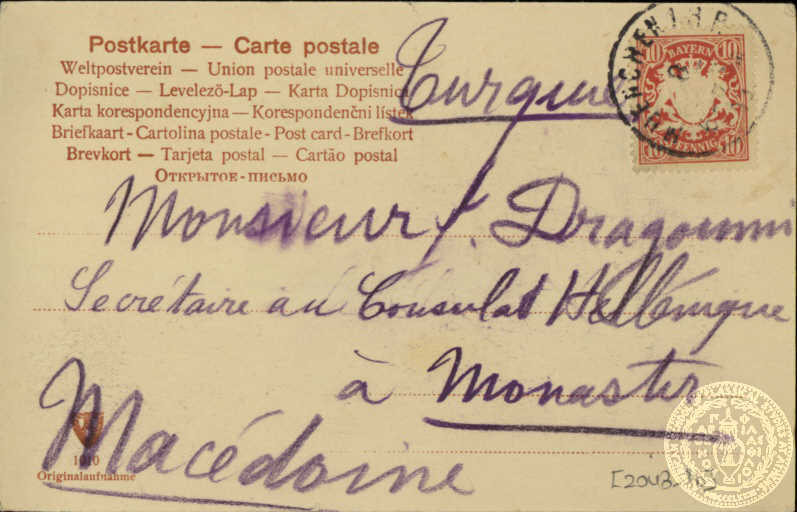 Postkarte — Carte postale
Weltpostverein — Union postale universelle
Dopisnice — Levelezö-Lap — Karta Dopisnica
Karta korespondencyjna — Korespondenční lístek
Briefkaart - Cartolina postale - Post card - Brefkort
Brevkort — Tarjeta postal — Cartão postal
Открытое - письмо
Turquie
10 BAYERN 10
10 PFENNIG 10
MUENCHEN 1. B.P.
Monsieur I. Dragoumi
Secrétaire au Consulat Hellénique
à Monastir
Macédoine
1010
Originalaufnahme